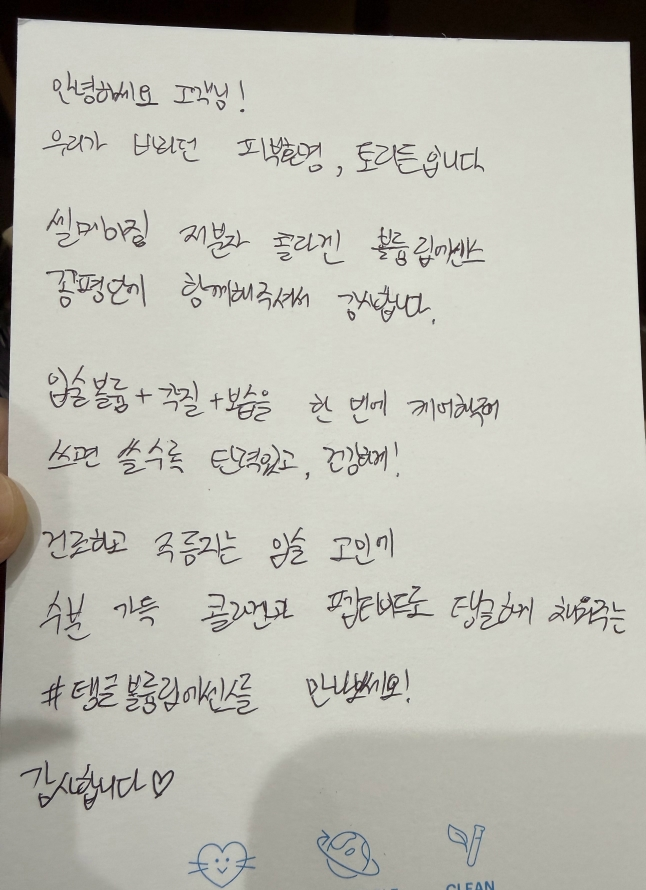 안녕하세요 고객님!
우리가 바라던 피부환경, 토리든입니다
셀메이징 저분자 콜라겐 볼륨립에센스
공평단에 함께해주셔서 감사합니다.
입술볼륨+각질+보습을 한 번에 케어해주어
쓰면 쓸수록 탄력있고, 건강하게!
건조하고 주름지는 입술 고민에
수분 가득 콜라겐과 펩타이드로 탱글하게 채워주는
#탱글볼륨립에센스를 만나보세요!
감사합니다♡
CLEAN